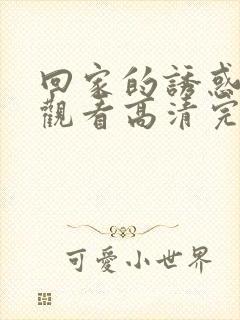 回家的誘惑
觀看高清完
可愛小世界